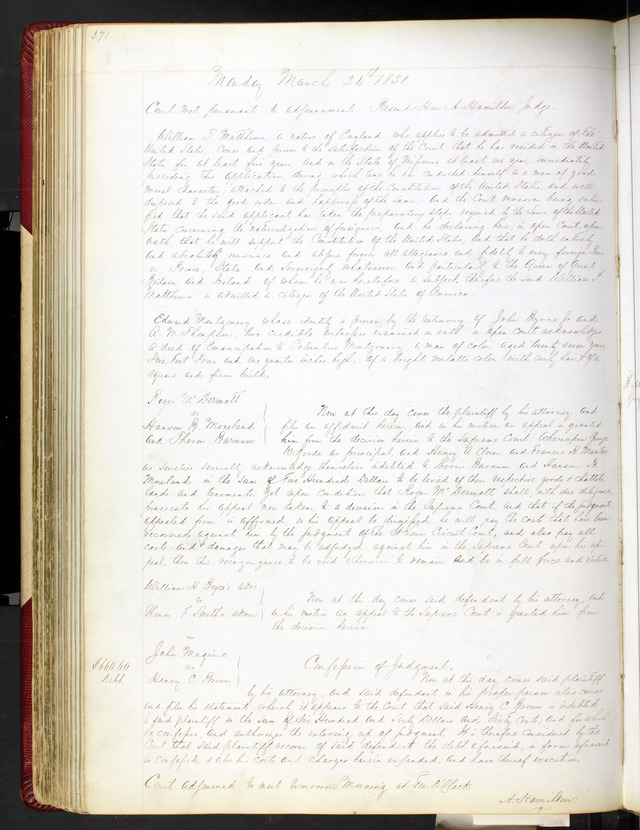 371
Monday March 24th 1851
Court met pursuant to adjournment. Present Hon A. Hamilton Judge.
William T Matthews a native of England who applies to be admitted a citizen of the
United States, comes and proves to the satisfaction of the Court that he has resided in the United
States for at least five years, and in the State of Missouri at least one year, immediately
preceding this application, during which time he has conducted himself as a man of good
moral character, attached to the principles of the Constitution of the United States, and well
disposed to the good order and happiness of the same. And the Court moreover being satis-
fied that the said applicant has taken the preparatory steps required by the laws of the United
States concerning the naturalization of foreigners, and he declaring here, in open Court, upon
oath, that he will support the Constitution of the United States, and that he doth entirely
and absolutely renounce and abjure forever all allegiance and fidelity to every foreign Pow-
er, Prince, State, and Sovereignty whatsoever, and particularly to the Queen of Great
Britain and Ireland of whom he was heretofore a subject, therefore the said William T
Matthews is admitted a citizen of the United States of America.
Edward Montgomery, whose identity is proven by the testimony of John Byrne Jr and
A. W. Thompson, two credible witnesses examined on oath in open court, acknowledges
a deed of Emancipation to Columbus Montgomery, a man of color, aged twenty seven years,
five feet four and one quarter inches high, of a bright mulatto color with curly hair &
square and firm build.
Roger McDermott
vs
Hanson B. Moreland
and Theron Barnum
Now at this day comes the plaintiff by his attorney and
files an affidavit herein, and on his motion an appeal is granted
him from the decision herein to the Supreme Court. Whereupon
as principal, and Henry A Clover and Francis H Manter
as Sureties severally acknowledge themselves indebted to Theron Barnum and Hanson B
Moreland in the sum of Five Hundred Dollars to be levied of their respective goods & chattels,
lands and tenements. Yet upon condition that Roger McDermott shall with due diligence
prosecute his appeal now taken to a decision in the Supreme Court, and that if the judgment
appealed from is affirmed, or his appeal be dismissed, he will pay the costs that have been
recovered against him by the judgment of the St Louis Circuit Court, and also pay all
costs and damages that may be adjudged against him in the Supreme Court upon his ap-
peal, then this recognizance to be void otherwise to remain and be in full force and virtue.
William H. Admr
vs
Thomas F. Smith's Admr
Now at this day comes said defendant by his attorney, and
on his motion an appeal to the Supreme Court is granted him from
the decision herein
John Maguire
vs
Henry C Brown
$660.60
Debt
Confession of Judgment.
Now at this day comes said plaintiff
by his attorney, and said defendant in his proper person also comes
and files his statement, whereby it appears to the Court that said Henry C Brown is indebted
to said plaintiff in the sum of Six Hundred and Sixty Dollars and Sixty Cents, and for which
he confesses and authorizes the entering up of judgment. It is therefore considered by the
Court that said plaintiff recover of said defendant the debt aforesaid, in form aforesaid
as confessed, & also his costs and charges herein expended, and have thereof execution.
Court adjourned to meet tomorrow Morning at Ten O'Clock.
A. Hamilton